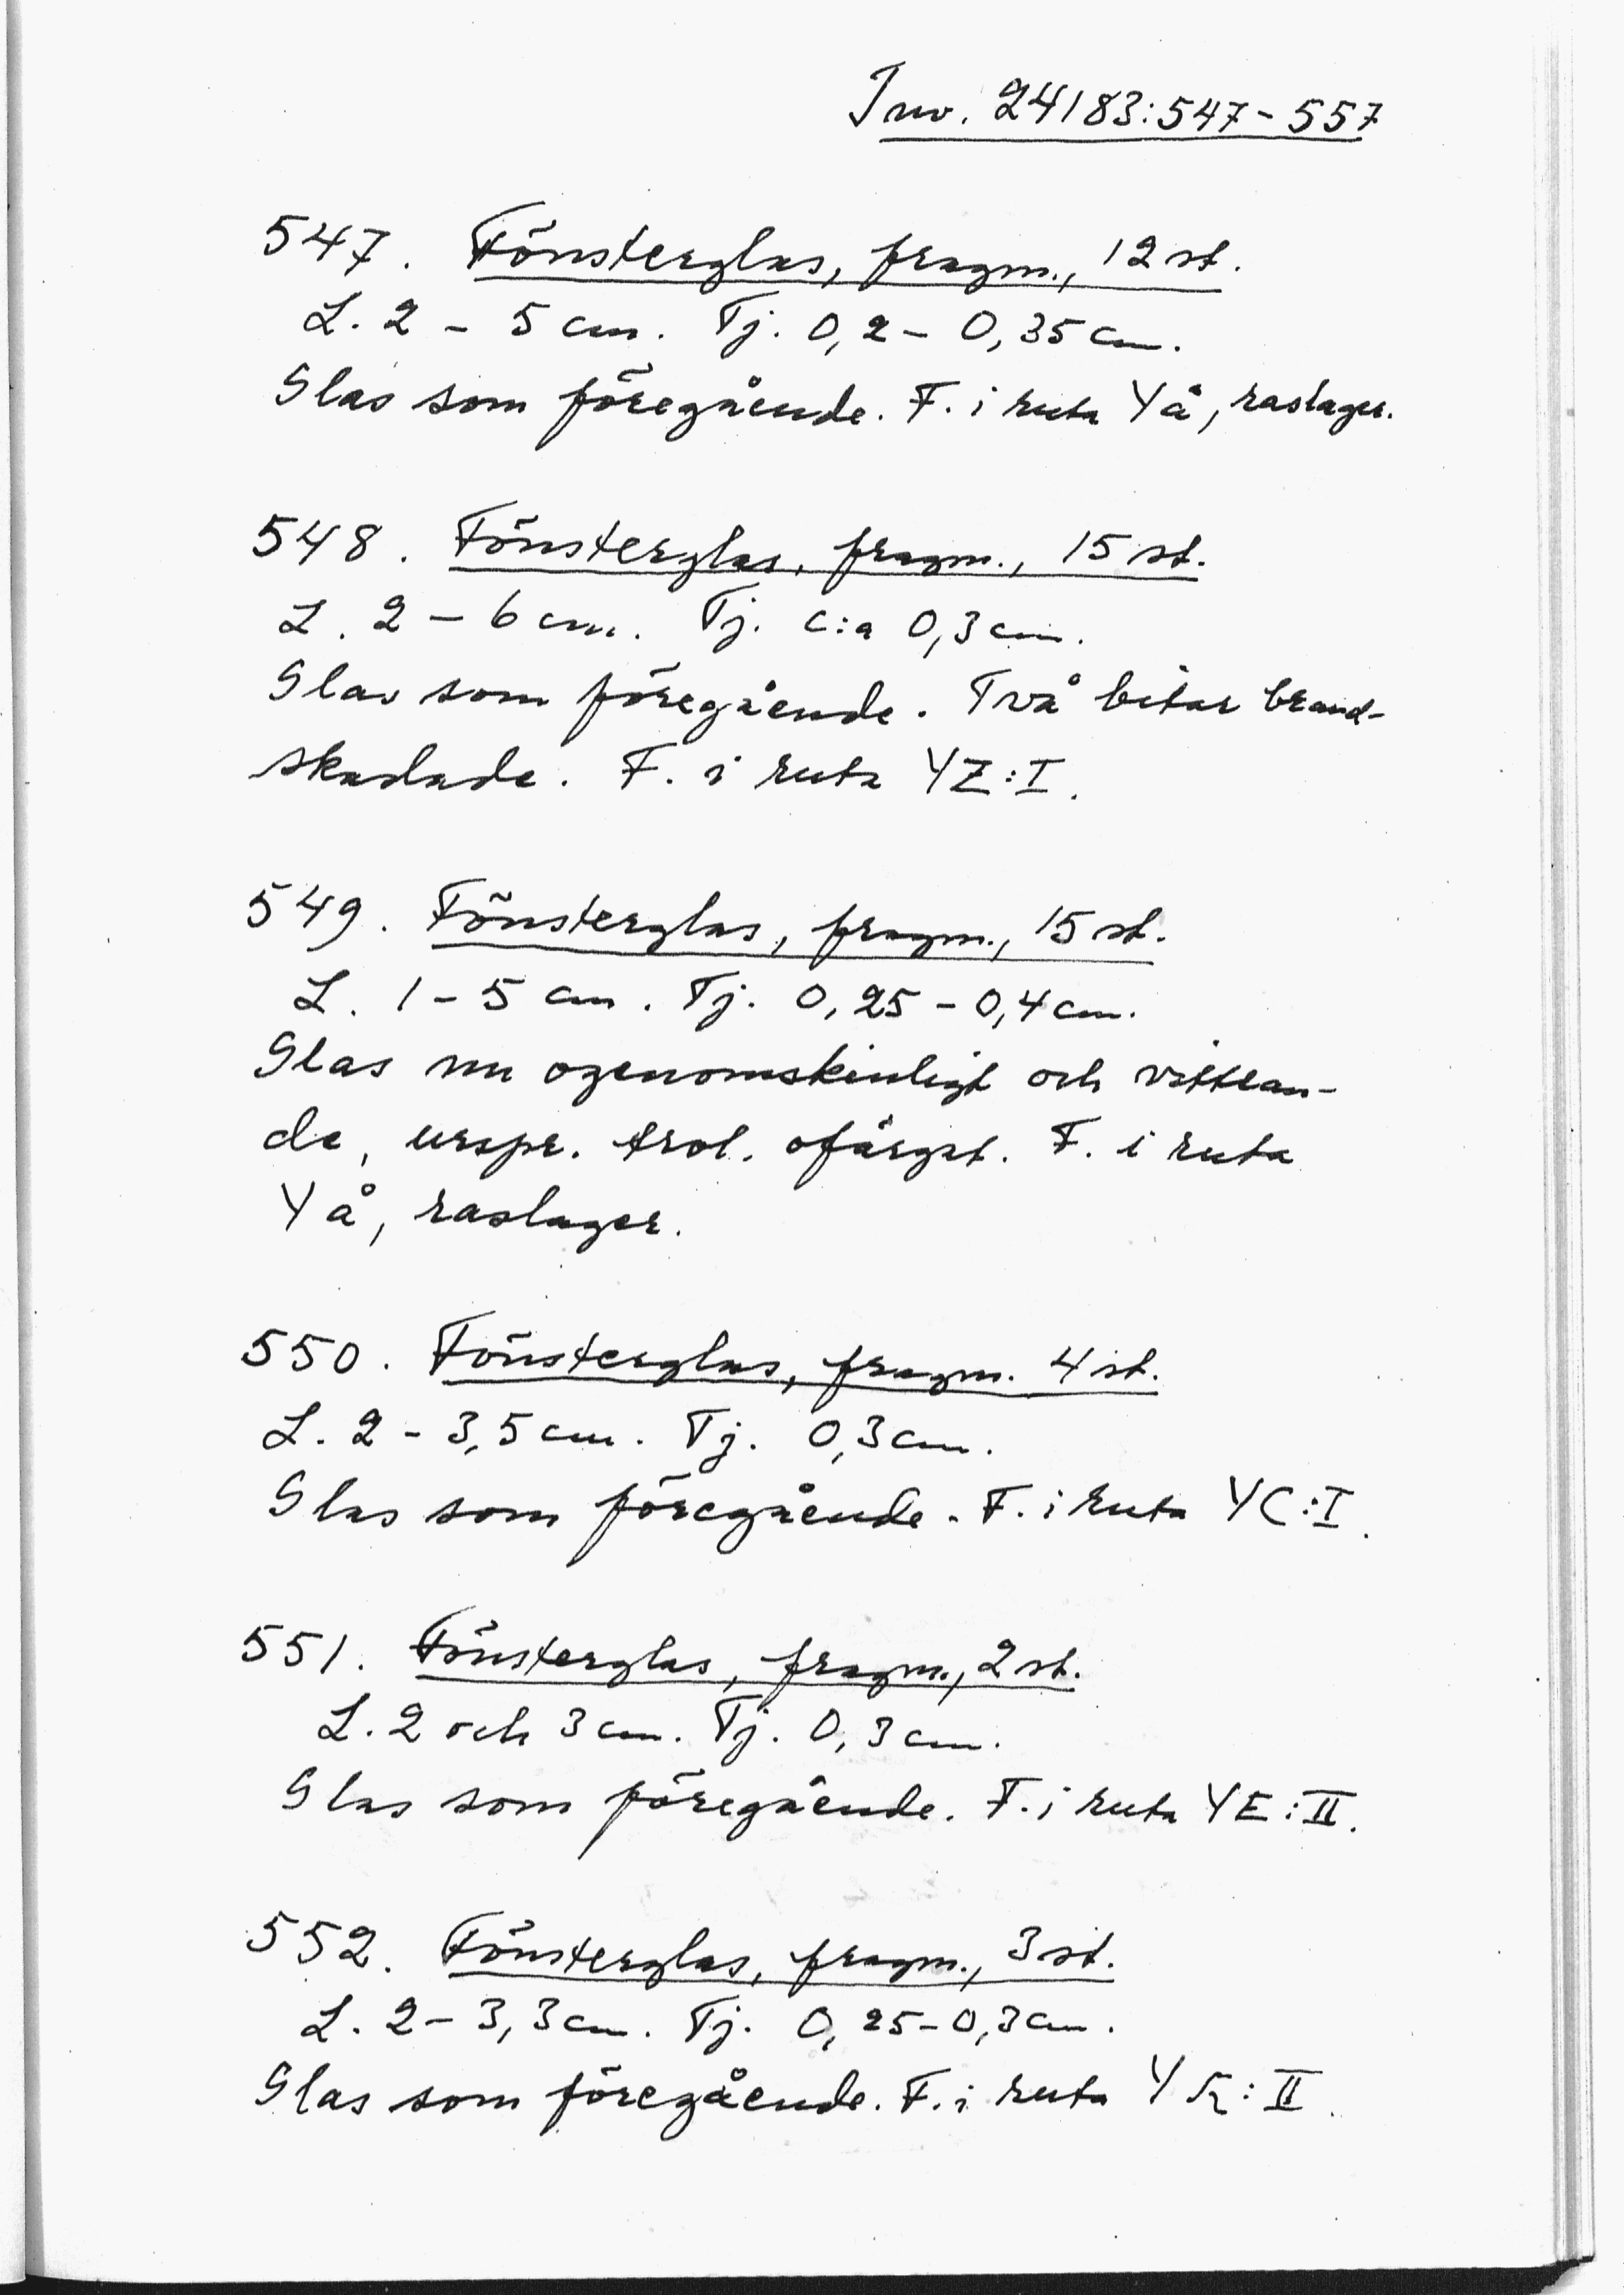 Inv. 24183:547-557
547. Fönsterglas, fragm., 12 st.
L. 2 - 5 cm. Tj. 0,2 - 0,35 cm.
Glas som föregående. F. i ruta YÅ, raslager.
548. Fönsterglas, fragm., 15 st.
L. 2 - 6 cm. Tj. c:a 0,3 cm.
Glas som föregående. Två bitar brand-
skadade. F. i ruta YZ:I.
549. Fönsterglas, fragm., 15 st.
L. 1 - 5 cm. Tj. 0,25 - 0,4 cm.
Glas nu ogenomskinligt och vittran-
de, urspr. trol. ofärgat. F. i ruta
YÅ, raslager.
550. Fönsterglas, fragm. 4 st.
L. 2 - 3,5 cm. Tj. 0,3 cm.
Glas som föregående. F. i ruta YC:I.
551. Fönsterglas, fragm., 2 st.
L. 2 och 3 cm. Tj. 0,3 cm.
Glas som föregående. F. i ruta YE:II.
552. Fönsterglas, fragm., 3 st.
L. 2 - 3,3 cm. Tj. 0,25 - 0,3 cm.
Glas som föregående. F. i ruta YK:II.